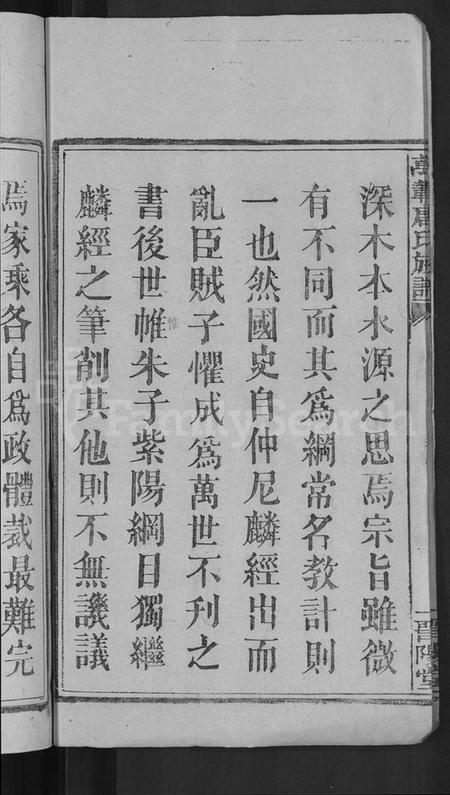 深木本水源之思焉宗旨雖微
有不同而其爲綱常名教計則
一也然國史自仲尼麟經出而
亂臣賊子懼成爲萬世不刋之
書後世帷朱子紫陽綱目獨繼
惟
麟經之筆削其他則不無譏議
焉家乘各自爲政體裁最難完
氏族譜
晋陽堂
FamilySearch